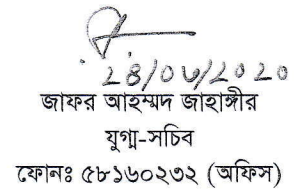 28/06/2020
জাফর আহম্মদ জাহাঙ্গীর
যুগ্ম-সচিব
ফোনঃ ৫৮১৬০২৩২ (অফিস)